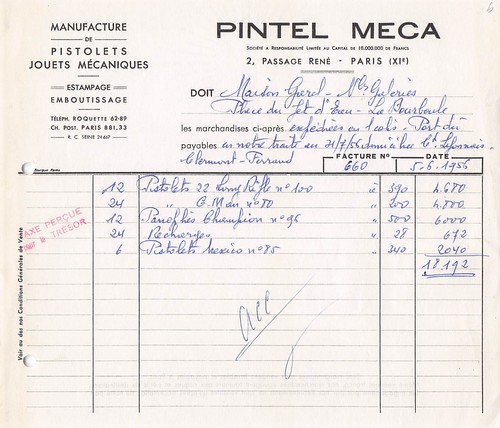 MANUFACTURE
DE
PISTOLETS
JOUETS MÉCANIQUES
ESTAMPAGE
EMBOUTISSAGE
TÉLÉPH. ROQUETTE 62-89
CH. POST. PARIS 881.33
R. C. SEINE 24.667
PINTEL MECA
SOCIÉTÉ A RESPONSABILITÉ LIMITÉE AU CAPITAL DE 10.000.000 DE FRANCS
2, PASSAGE RENÉ - PARIS (XIe)
DOIT Maison Gorel - Nles Galeries
Place du Jet d'Eau - La Bourboule
les marchandises ci-après expédiées en 1 colis. Port dû
payables en notre traite au 31/7/56 domiciliée Ct Lyonnais
Clermont-Ferrand
FACTURE No DATE
660 5-6-1956
12 Pistolets 22 Long Rifle no 100 à 390 4.680
24 " G-Man no 80 " 200 4.800
12 Panoplies Champion no 96 " 500 6000
24 Recharges " 28 672
6 Pistolets Mexico no 85 " 340 2040
18192
TAXE PERÇUE
POUR le TRÉSOR
Voir au dos nos Conditions Générales de Vente